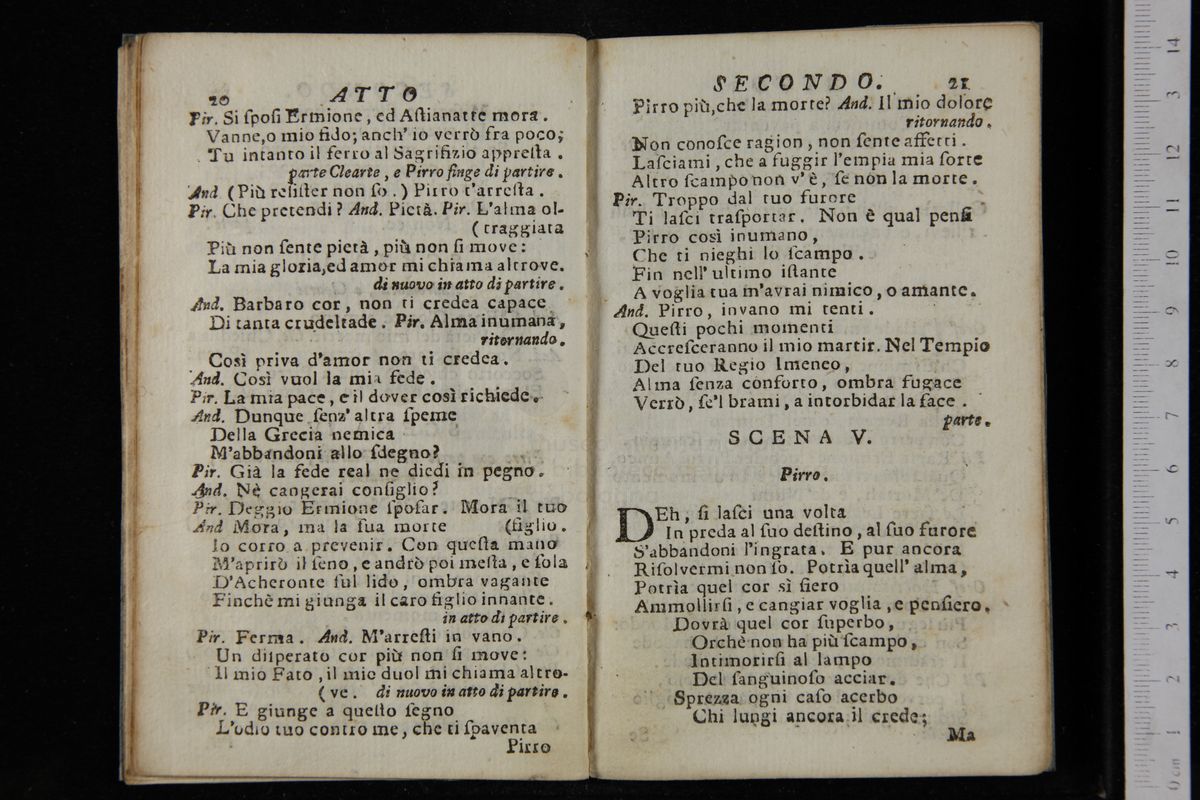 20 ATTO
Pir. Si ſpoſi Ermione, ed Aſtianatte mora.
Vanne, o mio fido; anch' io verrò fra poco;
Tu intanto il ferro al Sagrifizio appreſta.
parte Clearte, e Pirro finge di partire.
And (Più reſiſter non ſo.) Pirro t'arreſta.
Pir. Che pretendi? And. Pietà. Pir. L'alma ol-
(traggiata
Più non ſente pietà, più non ſi move:
La mia gloria, ed amor mi chiama altrove.
di nuovo in atto di partire.
And. Barbaro cor, non ti credea capace
Di tanta crudeltade. Pir. Alma inumana,
ritornando.
Così priva d'amor non ti credea.
And. Così vuol la mia fede.
Pir. La mia pace, e il dover così richiede.
And. Dunque ſenz' altra ſpeme
Della Grecia nemica
M'abbandoni allo ſdegno?
Pir. Già la fede real ne diedi in pegno.
And. Nè cangerai conſiglio?
Pir. Deggio Ermione ſpoſar. Mora il tuo
And Mora, ma la ſua morte (figlio.
Io corro a prevenir. Con queſta mano
M'aprirò il ſeno, e andrò poi meſta, e ſola
D'Acheronte ſul lido, ombra vagante
Finchè mi giunga il caro figlio innante.
in atto di partire.
Pir. Ferma. And. M'arreſti in vano.
Un diſperato cor più non ſi move:
Il mio Fato, il mio duol mi chiama altro-
(ve. di nuovo in atto di partire.
Pir. E giunge a queſto ſegno
L'odio tuo contro me, che ti ſpaventa
Pirro
SECONDO. 21
Pirro più, che la morte? And. Il mio dolore
ritornando.
Non conoſce ragion, non ſente affetti.
Laſciami, che a fuggir l'empia mia ſorte
Altro ſcampo non v'è, ſe non la morte.
Pir. Troppo dal tuo furore
Ti laſci traſportar. Non è qual penſi
Pirro così inumano,
Che ti nieghi lo ſcampo.
Fin nell' ultimo iſtante
A voglia tua m'avrai nimico, o amante.
And. Pirro, invano mi tenti.
Queſti pochi momenti
Accreſceranno il mio martir. Nel Tempio
Del tuo Regio Imeneo,
Alma ſenza conforto, ombra fugace
Verrò, ſe'l brami, a intorbidar la face.
parte.
SCENA V.
Pirro.
DEh, ſi laſci una volta
In preda al ſuo deſtino, al ſuo furore
S'abbandoni l'ingrata. E pur ancora
Riſolvermi non ſo. Potrìa quell' alma,
Potrìa quel cor sì fiero
Ammollirſi, e cangiar voglia, e penſiero.
Dovrà quel cor ſuperbo,
Orchè non ha più ſcampo,
Intimorirſi al lampo
Del ſanguinoſo acciar.
Sprezza ogni caſo acerbo
Chi lungi ancora il crede;
Ma